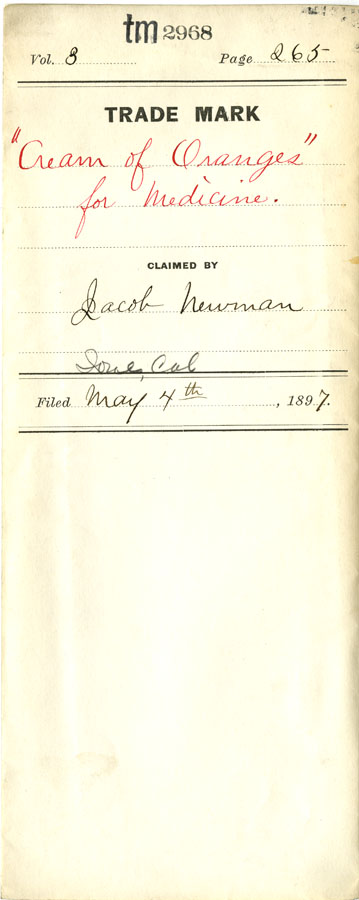 tm 2968
Vol. 8 Page 265
TRADE MARK
"Cream of Oranges"
for Medicine.
CLAIMED BY
Jacob Newman
Ione, Cal
Filed May 4th, 1897.